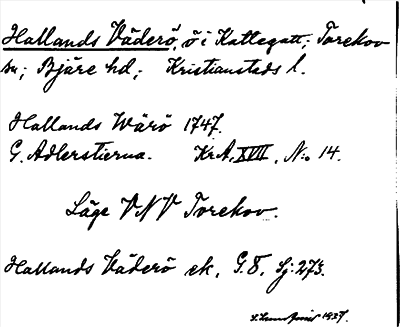 Hallands Väderö, ö i Kattegatt; Torekov
sn; Bjäre hd; Kristianstads l.
Hallands Wärö 1747.
G. Adlerstierna. KrA, XVII, No 14.
Läge VNV Torekov.
Hallands Väderö ek. G.8. Sj: 273.
1937.